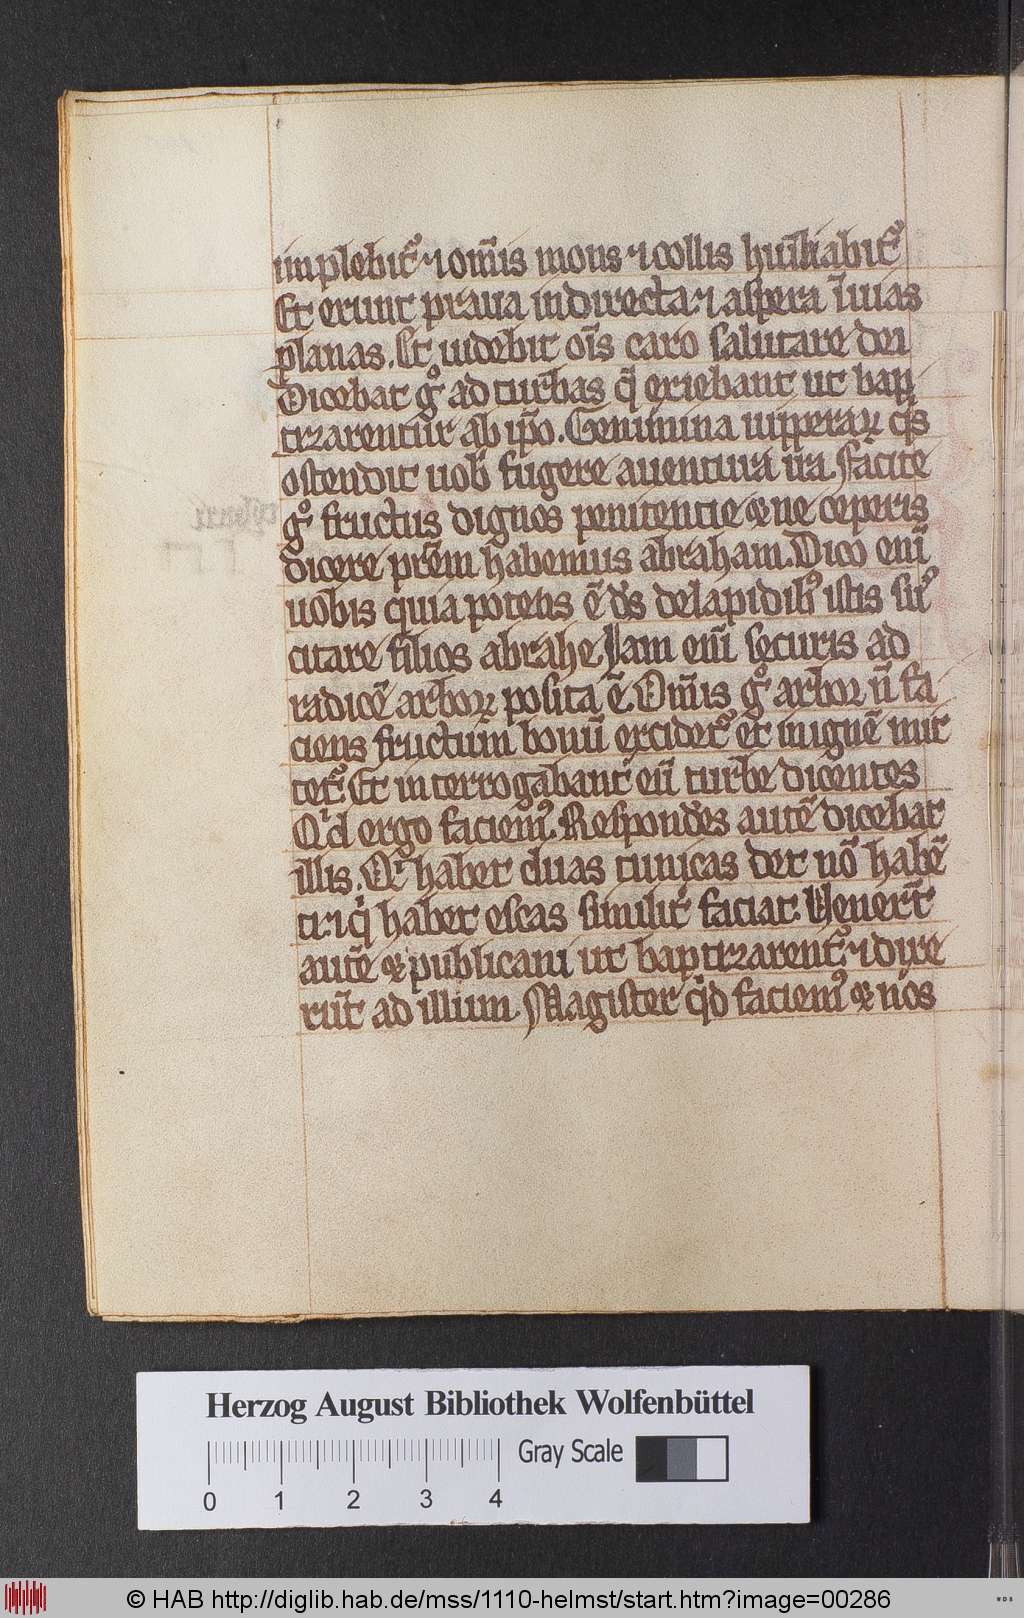 implebit᷑ ⁊ om̄is mons ⁊ collis hūiliabit᷑
Et erunt praua indirecta ⁊ aspera ī uias
planas. Et uidebit oīs caro salutare dei
Dicebat gͦ ad turbas q̄ exiebant ut bap
tizarentur ab ip̄o. Genimina uiperaꝝ qͥs
ostendit uob̄ fugere auentura ira. facite
gͦ fructus dignos penitencie ⁊ ne ceperis
dicere pr̄em habemus abraham. Dico eni̅
uobis quia potens ē ds̄ delapidibꝰ istis suſ
citare filios abrahe. Jam eni̅ securis ad
radicē arborꝝ posita ē. Om̄is gͦ arbor n̄ fa
ciens fructum bonū excidet᷑ et inignē mit
tet᷑. Et interrogabant eū turbe dicentes
Qͥd ergo faciemꝰ. Respondēs autē dicebat
illis. Qͥ habet duas tunicas det nō habē
ti. ⁊ qͥ habet escas similit᷑ faciat. Uenert̄
autē ⁊ publicani ut baptizarent᷑. ⁊ dixe
rūt ad illum. Magister qͥd faciemꝰ ⁊ nos
Herzog August Bibliothek Wolfenbüttel
Gray Scale
0 1 2 3 4
© HAB http://diglib.hab.de/mss/1110-helmst/start.htm?image=00286